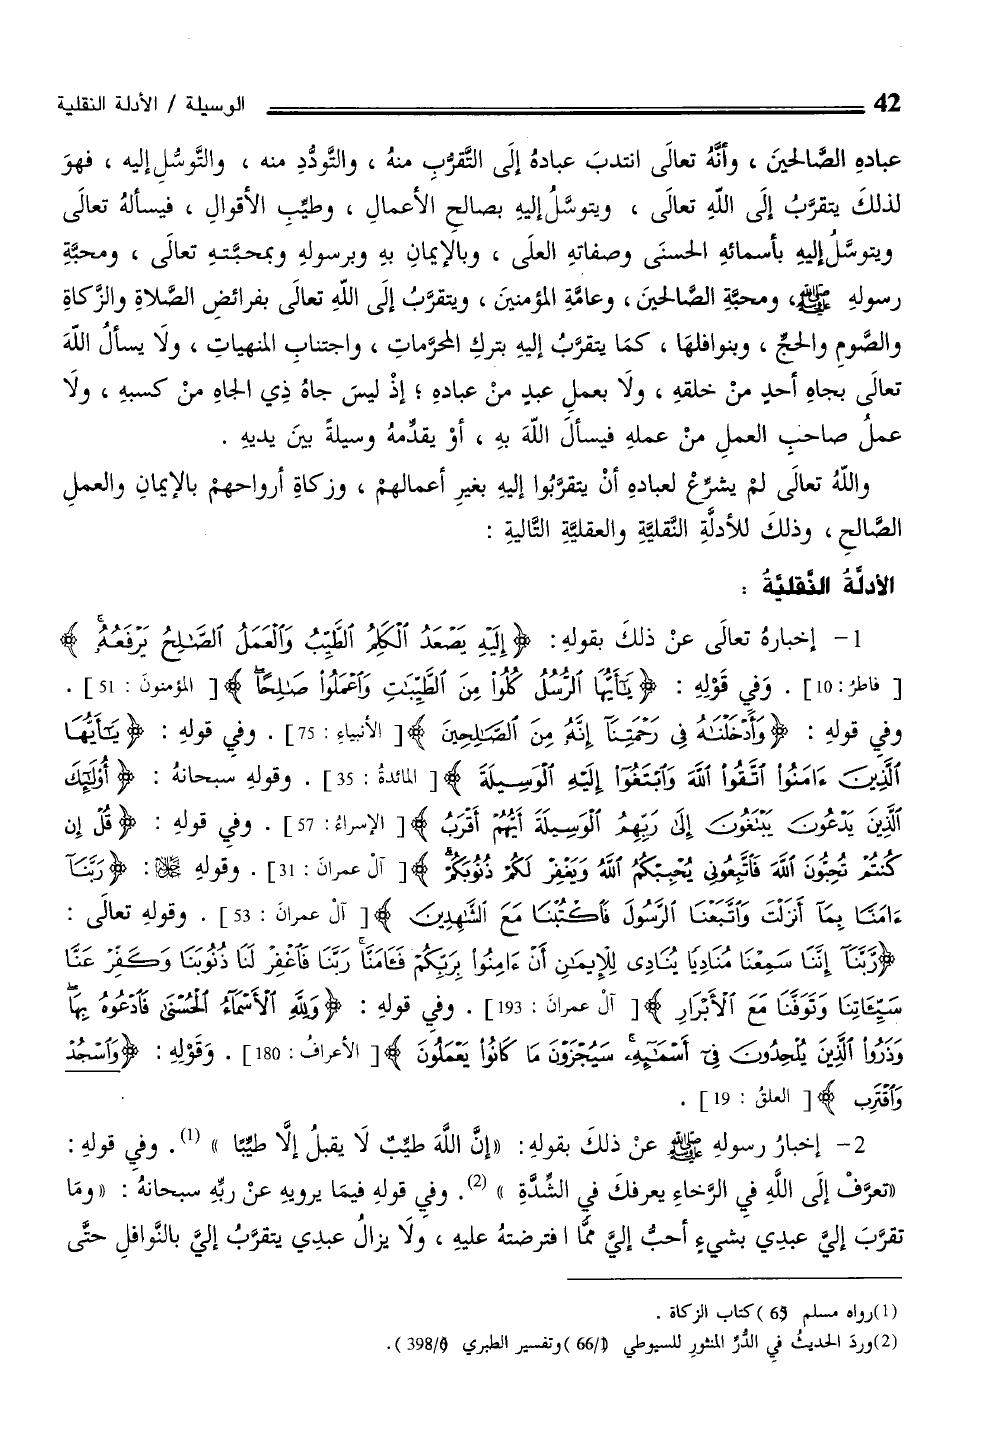 42 الوسيلة / الأدلة النقلية
عبادهِ الصَّالحينَ ، وأنَّهُ تعالَى انتدبَ عبادهُ إلَى التَّقرُّبِ منهُ ، والتَّودُّدِ منه ، والتَّوسُّلِ إليه ، فهوَ
لذلكَ يتقرَّبُ إلَى اللّهِ تعالَى ، ويتوسَّلُ إليهِ بصالحِ الأعمالِ ، وطيِّبِ الأقوالِ ، فيسألهُ تعالَى
ويتوسَّلُ إليهِ بأسمائهِ الحسنَى وصفاتهِ العلَى ، وبالإيمانِ بهِ وبرسولهِ وبمحبَّتهِ تعالَى ، ومحبَّةِ
رسولهِ ﷺ، ومحبَّةِ الصَّالحينَ، وعامَّةِ المؤمنينَ ، ويتقرَّبُ إلَى اللّهِ تعالَى بفرائضِ الصَّلاةِ والزَّكاةِ
والصَّومِ والحجِّ ، وبنوافلهَا ، كمَا يتقرَّبُ إليهِ بتركِ المحرَّماتِ ، واجتنابِ المنهياتِ ، ولَا يسألُ اللّهَ
تعالَى بجاهِ أحدٍ منْ خلقهِ ، ولَا بعملِ عبدٍ منْ عبادهِ ؛ إذْ ليسَ جاهُ ذِي الجاهِ منْ كسبهِ ، ولَا
عملُ صاحبِ العملِ منْ عملهِ فيسألَ اللّهَ بهِ ، أوْ يقدِّمهُ وسيلةً بينَ يديهِ .
واللّهُ تعالَى لمْ يشرِّعْ لعبادهِ أنْ يتقرَّبُوا إليهِ بغيرِ أعمالهمْ ، وزكاةِ أرواحهمْ بالإيمانِ والعملِ
الصَّالحِ ، وذلكَ للأدلَّةِ النَّقليَّةِ والعقليَّةِ التَّاليةِ :
الأدلَّةُ النَّقليَّةُ :
1- إخبارهُ تعالَى عنْ ذلكَ بقولهِ: ﴿ إِلَيْهِ يَصْعَدُ ٱلْكَلِمُ ٱلطَّيِّبُ وَٱلْعَمَلُ ٱلصَّـٰلِحُ يَرْفَعُهُۥ ﴾
[ فاطرُ : 10] . وَفي قَوْلِهِ : ﴿ يَـٰٓأَيُّهَا ٱلرُّسُلُ كُلُوا۟ مِنَ ٱلطَّيِّبَـٰتِ وَٱعْمَلُوا۟ صَـٰلِحًا ﴾ [ المؤمنونَ : 51] .
وفي قولهِ : ﴿ وَأَدْخَلْنَـٰهُ فِى رَحْمَتِنَآ إِنَّهُۥ مِنَ ٱلصَّـٰلِحِينَ ﴾ [ الأنبياءِ : 75] . وفي قولهِ : ﴿ يَـٰٓأَيُّهَا
ٱلَّذِينَ ءَامَنُوا۟ ٱتَّقُوا۟ ٱللَّهَ وَٱبْتَغُوٓا۟ إِلَيْهِ ٱلْوَسِيلَةَ ﴾ [ المائدةُ : 35] . وقولهِ سبحانهُ : ﴿ أُو۟لَـٰٓئِكَ
ٱلَّذِينَ يَدْعُونَ يَبْتَغُونَ إِلَىٰ رَبِّهِمُ ٱلْوَسِيلَةَ أَيُّهُمْ أَقْرَبُ ﴾ [ الإسراءُ : 57] . وفي قولهِ : ﴿ قُلْ إِن
كُنتُمْ تُحِبُّونَ ٱللَّهَ فَٱتَّبِعُونِى يُحْبِبْكُمُ ٱللَّهُ وَيَغْفِرْ لَكُمْ ذُنُوبَكُمْ ﴾ [ آلْ عمرانَ : 31] . وقولهِ ﷻ : ﴿ رَبَّنَآ
ءَامَنَّا بِمَآ أَنزَلْتَ وَٱتَّبَعْنَا ٱلرَّسُولَ فَٱكْتُبْنَا مَعَ ٱلشَّـٰهِدِينَ ﴾ [ آلْ عمرانَ : 53] . وقولهِ تعالَى :
﴿ رَّبَّنَآ إِنَّنَا سَمِعْنَا مُنَادِيًا يُنَادِى لِلْإِيمَـٰنِ أَنْ ءَامِنُوا۟ بِرَبِّكُمْ فَـَٔامَنَّا رَبَّنَا فَٱغْفِرْ لَنَا ذُنُوبَنَا وَكَفِّرْ عَنَّا
سَيِّـَٔاتِنَا وَتَوَفَّنَا مَعَ ٱلْأَبْرَارِ ﴾ [ آلْ عمرانَ : 193] . وفي قولهِ : ﴿ وَلِلَّهِ ٱلْأَسْمَآءُ ٱلْحُسْنَىٰ فَٱدْعُوهُ بِهَا
وَذَرُوا۟ ٱلَّذِينَ يُلْحِدُونَ فِىٓ أَسْمَـٰٓئِهِۦ سَيُجْزَوْنَ مَا كَانُوا۟ يَعْمَلُونَ ﴾ [ الأعرافُ : 180] . وَقَوْلِهِ : ﴿ وَٱسْجُدْ
وَٱقْتَرِب ﴾ [ العلقُ : 19] .
2- إخبارُ رسولهِ ﷺ عنْ ذلكَ بقولهِ: «إنَّ اللَّهَ طيِّبٌ لَا يقبلُ إلَّا طيِّبًا » (1). وفي قولهِ :
«تعرَّفْ إلَى اللَّهِ في الرَّخاءِ يعرفكَ في الشِّدَّةِ » (2). وفي قولهِ فيمَا يرويهِ عنْ ربِّهِ سبحانهُ : «ومَا
تقرَّبَ إليَّ عبدِي بشيءٍ أحبُّ إليَّ ممَّا افترضتهُ عليهِ ، ولَا يزالُ عبدِي يتقرَّبُ إليَّ بالنَّوافلِ حتَّى
(1)رواه مسلم (65 ) كتاب الزكاة .
(2)وردَ الحديثُ في الدُّرِّ المنثورِ للسيوطي (66/1) وتفسير الطبري (398/6) .